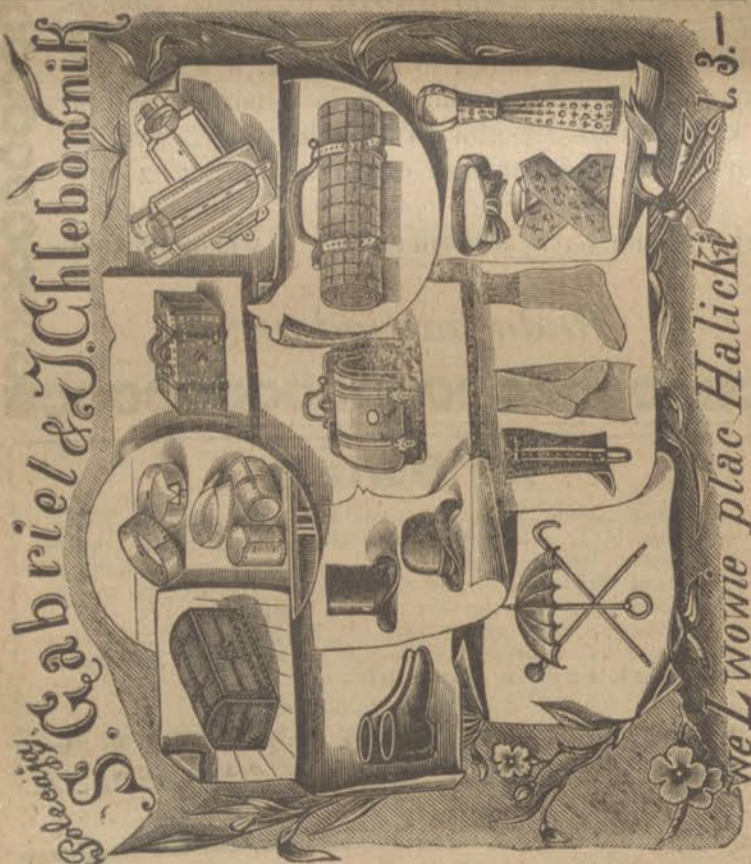 Polecają się
S. Gabriel & J. Chlebownik
we Lwowie plac Halicki l. 3.—